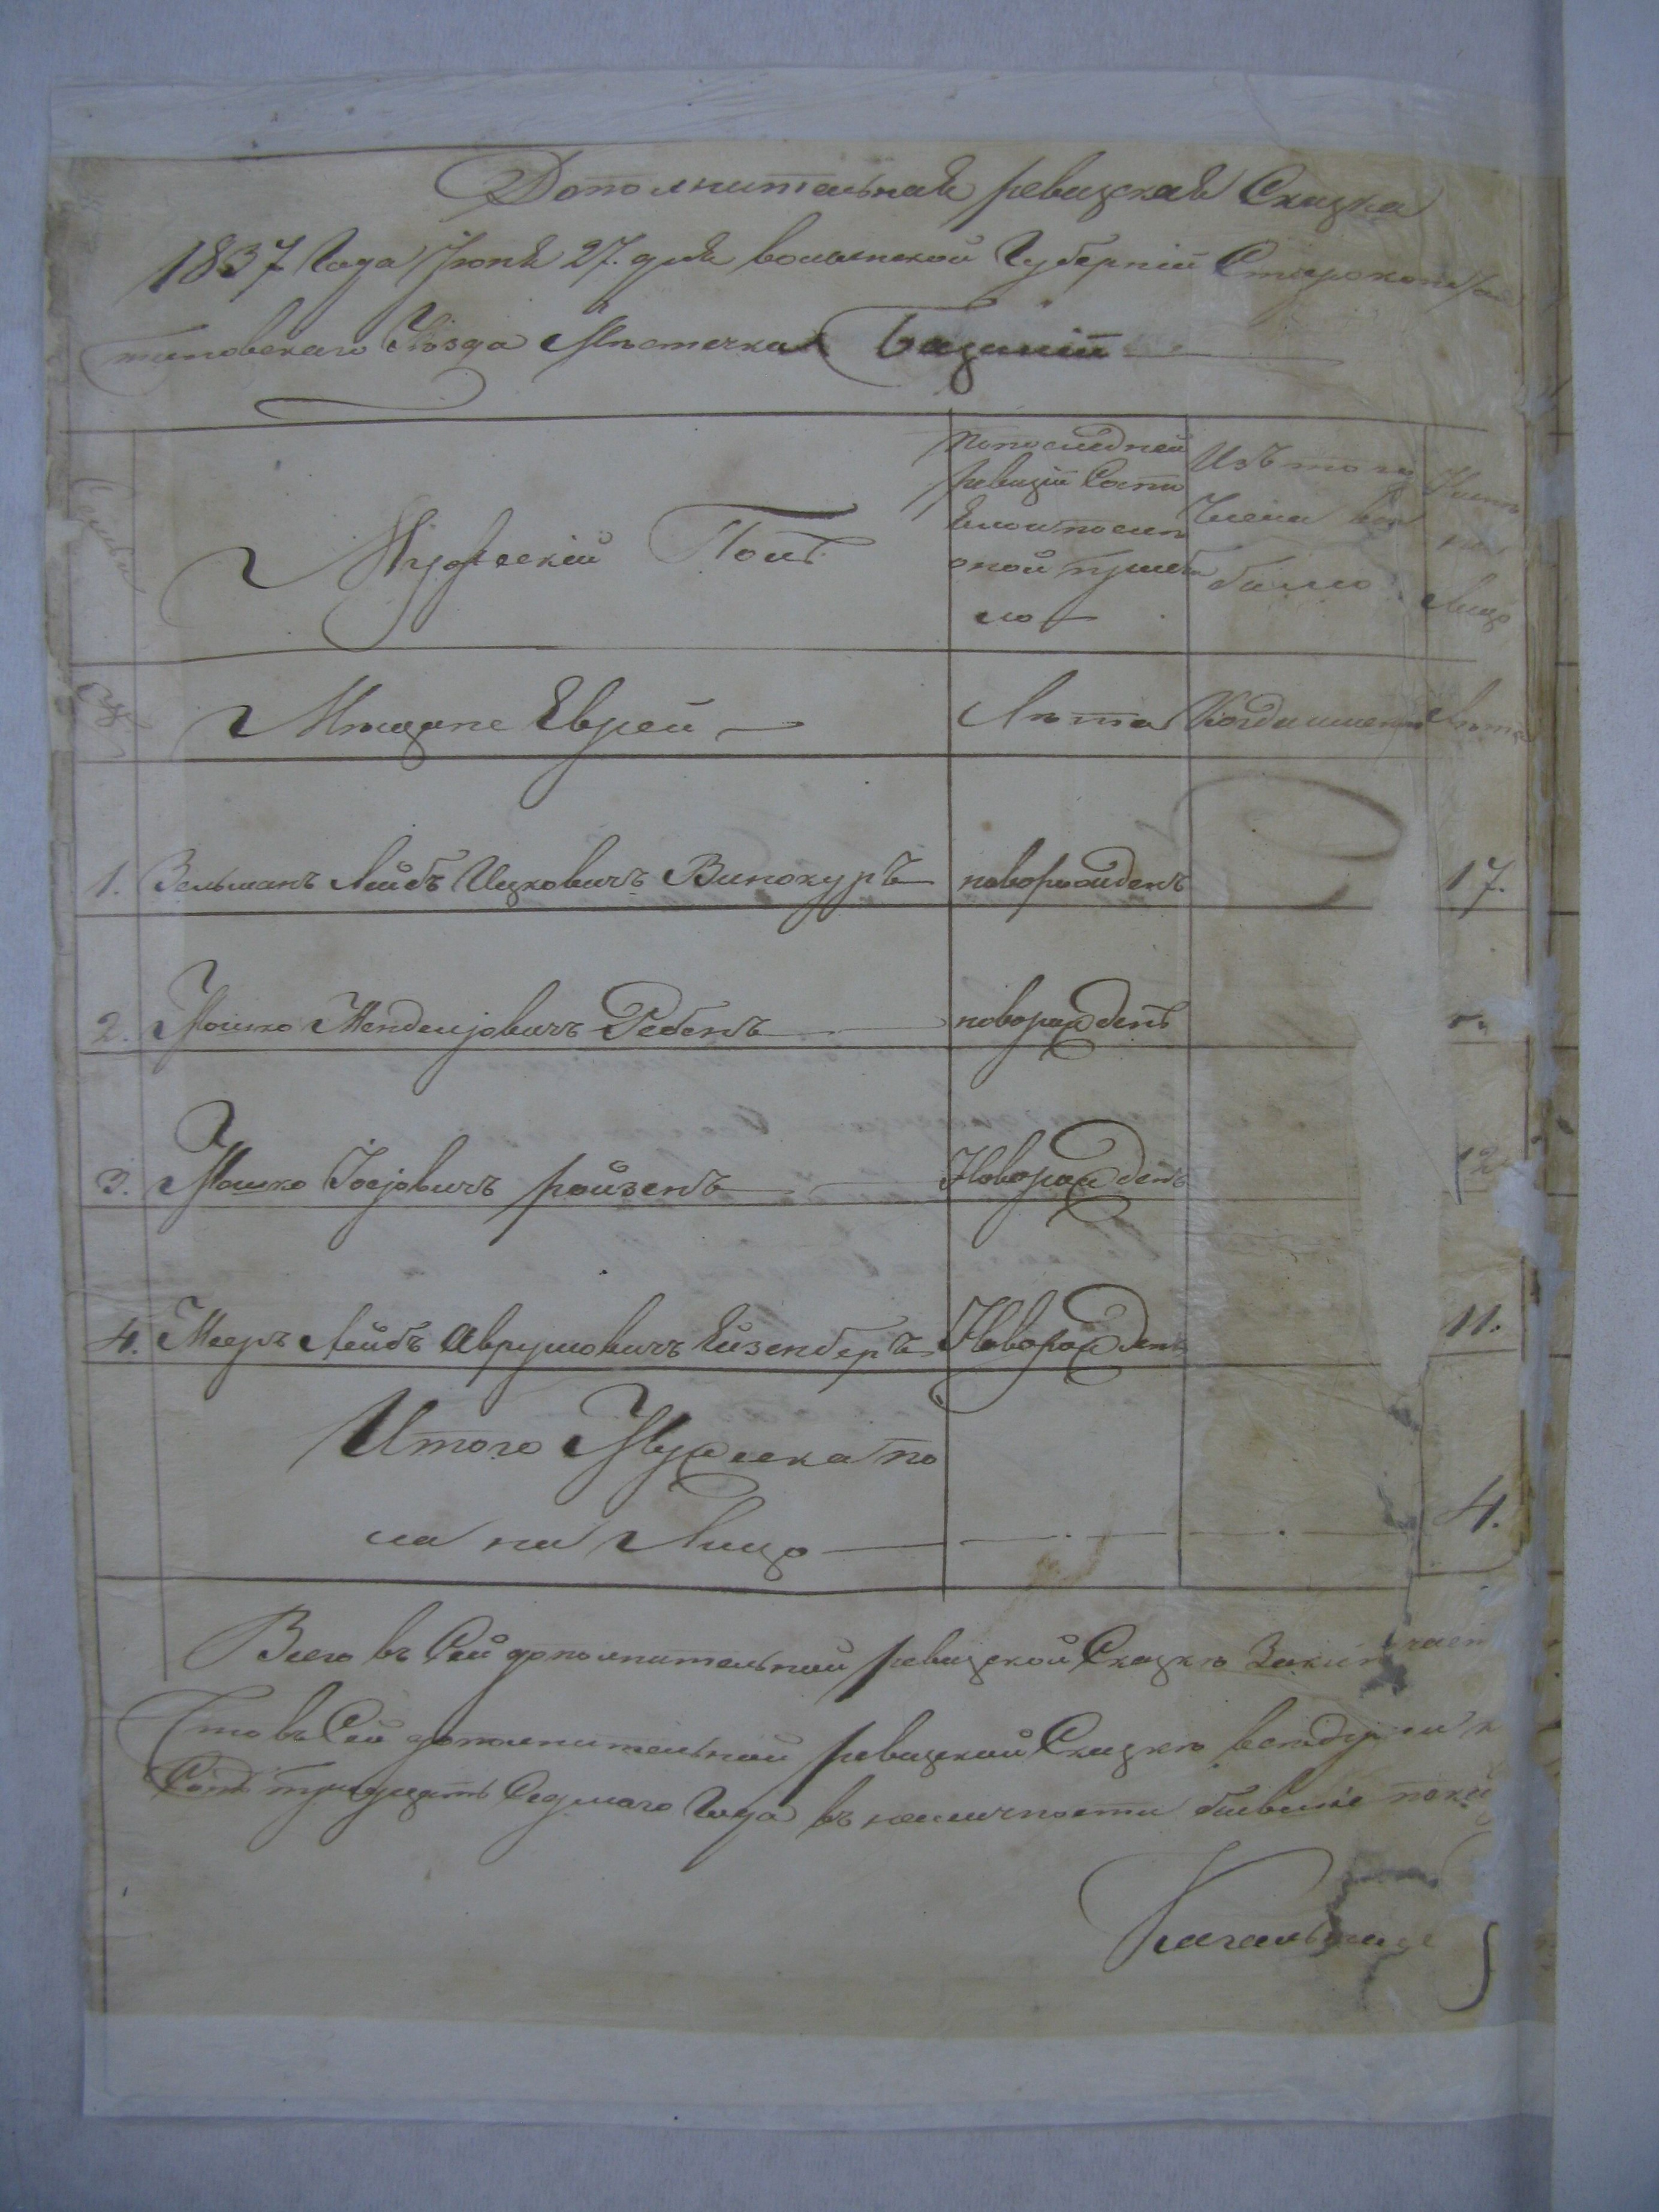 Дополнительная ревизская Сказка
1837 Года Іюня 27. дня волынской Губерніи Староконстан
тиновскаго Уѣзда Мѣстечка Базаліи
Семьи
Мужескій Полъ
По последней
ревизіи Состо
яло и после
оной прибы
ло
Изъ того
Числа вы
было
Нынѣ
на
Лицо
№
Мещане Евреи
Лѣта
Когда именно
Лѣта
1. Зельманъ Лейбъ Ицковичъ Винокуръ новорожденъ 17.
2. Мошко Менделіовичъ Ребенъ новорожденъ
3. Мошко Іосіовичъ ройзенъ Новорожденъ 12
4. Мееръ Лейбъ Аврумовичъ Ейзенберъ Новорожденъ 11.
Итого Мужеска по
ла на Лицо 4.
Всего въ Сей дополнительной ревизской Сказкѣ Заключает
Что въ Сей дополнительной ревизской Сказкѣ все души
Сотъ тридцать Седмаго Года въ наличности бывшіе
Кагальные